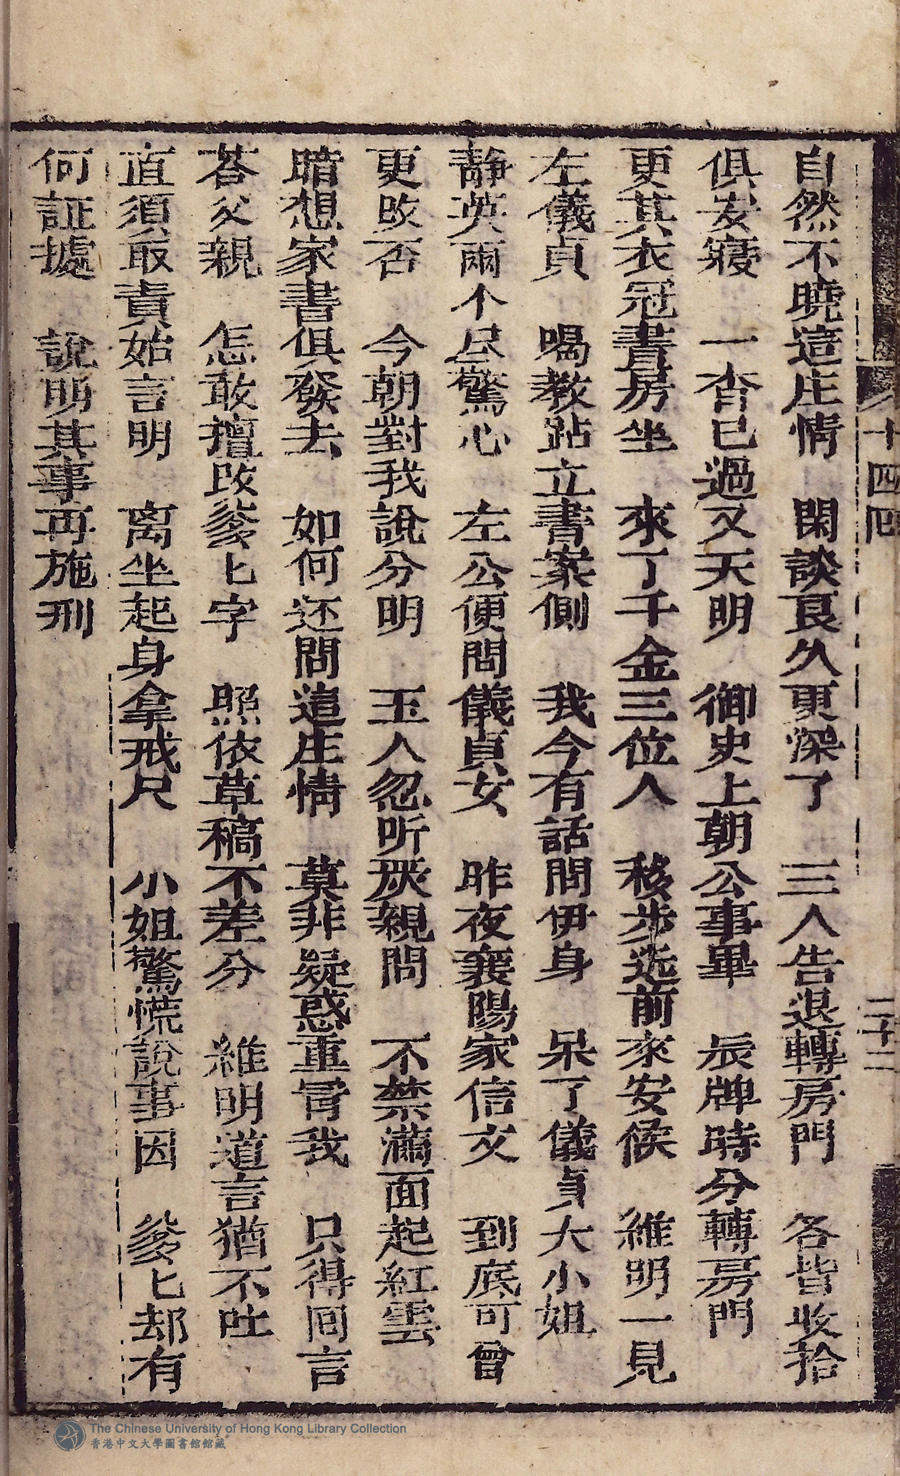 十四囘
二十二
自然不曉這庄情 閑談良久更深了 三人告退轉房門 各皆收拾
俱安寢 一宵已過又天明 御史上朝公事畢 辰牌時分轉房門
更其衣冠書房坐 來了千金三位人 移步近前來安候 維明一見
左儀貞 喝教跕立書案側 我今有話問伊身 呆了儀貞大小姐
靜英兩个尽驚心 左公便問儀貞女 昨夜襄陽家信文 到底可曾
更改否 今朝對我說分明 玉人忽听厌親問 不禁滿面起紅雲
暗想家書俱發去 如何还問這庄情 莫非疑惑重冐我 只得囘言
荅父親 怎敢擅改爹匕字 照依草稿不差分 維明道言猶不吐
直須取責始言明 离坐起身拿戒尺 小姐驚慌說事因 爹匕却有
何証據 說明其事再施刑
The Chinese University of Hong Kong Library Collection
香港中文大學圖書館館藏